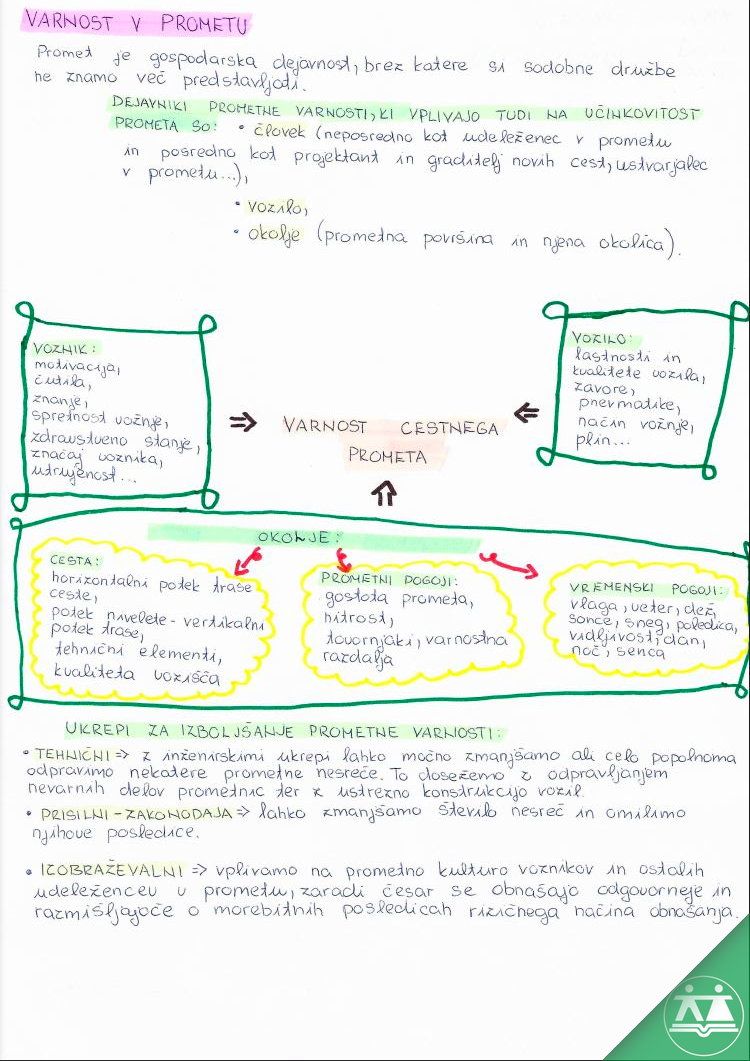 VARNOST V PROMETU
Promet je gospodarska dejavnost, brez katere si sodobne družbe
ne znamo več predstavljati.
DEJAVNIKI PROMETNE VARNOSTI, KI VPLIVAJO TUDI NA UČINKOVITOST
PROMETA SO: • človek (neposredno kot udeleženec v prometu
in posredno kot projektant in graditelj novih cest, ustvarjalec
v prometu...),
• vozilo,
• okolje (prometna površina in njena okolica).
VOZNIK:
motivacija,
čutila,
znanje,
spretnost vožnje,
zdravstveno stanje,
značaj voznika,
utrujenost...
⇒ VARNOST CESTNEGA ⇐
PROMETA
⇑
VOZILO:
lastnosti in
kvalitete vozila,
zavore,
pnevmatike,
način vožnje,
plin...
OKOLJE:
CESTA:
horizontalni potek trase
ceste,
potek nivelete - vertikalni
potek trase,
tehnični elementi,
kvaliteta vozišča
PROMETNI POGOJI:
gostota prometa,
hitrost,
tovornjaki, varnostna
razdalja
VREMENSKI POGOJI:
vlaga, veter, dež,
sonce, sneg, poledica,
vidljivost, dan,
noč, senca
UKREPI ZA IZBOLJŠANJE PROMETNE VARNOSTI:
• TEHNIČNI => z inženirskimi ukrepi lahko močno zmanjšamo ali celo popolnoma
odpravimo nekatere prometne nesreče. To dosežemo z odpravljanjem
nevarnih delov prometnic ter z ustrezno konstrukcijo vozil.
• PRISILNI - ZAKONODAJA => lahko zmanjšamo število nesreč in omilimo
njihove posledice.
• IZOBRAŽEVALNI => vplivamo na prometno kulturo voznikov in ostalih
udeležencev v prometu, zaradi česar se obnašajo odgovorneje in
razmišljajoče o morebitnih posledicah rizičnega načina obnašanja.